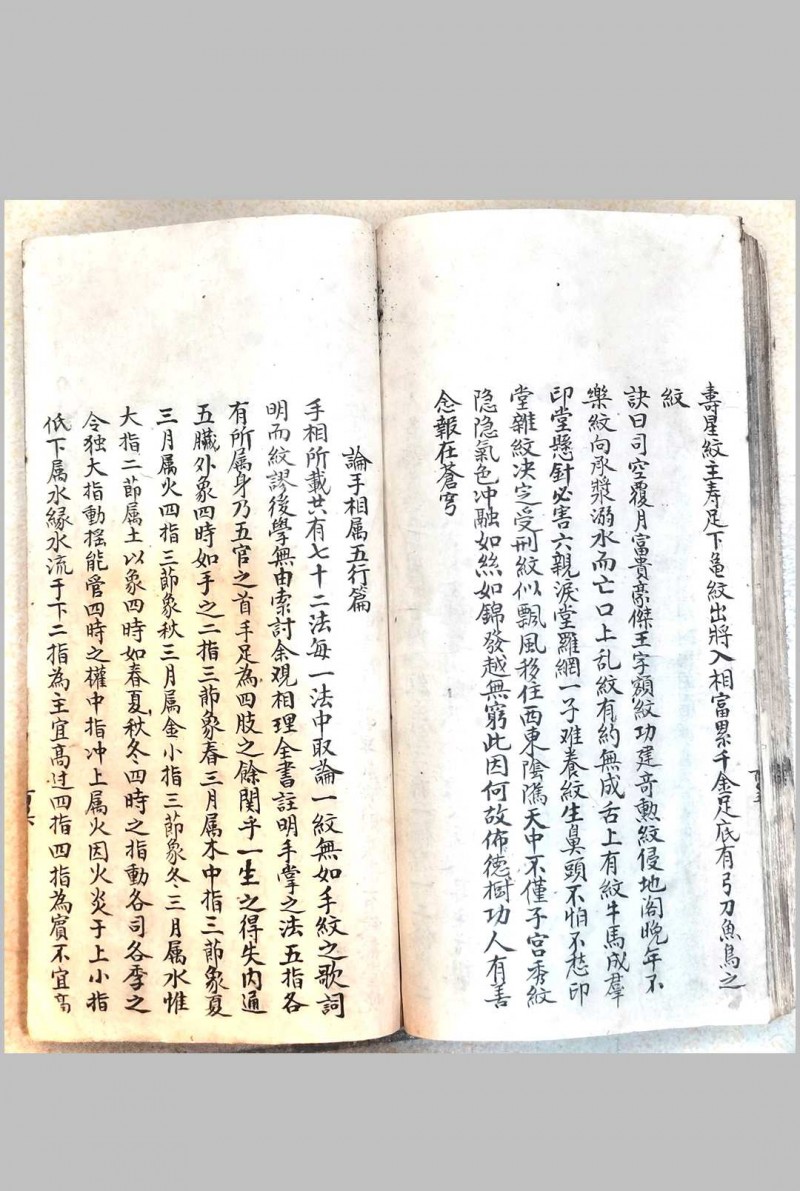 壽星紋主寿足下亀紋出將入相富累千金足底有弓刀魚鳥之
紋
訣曰司空覆月富貴豪傑王字額紋功建竒勲紋侵地阁晚年不
樂紋向承漿溺水而亡口上乱紋有約無成舌上有紋牛馬成羣
印堂懸針必害六親淚堂羅網一子难養紋生鼻頭不怕不愁印
堂雜紋决定受刑紋似飄風移住西東陰隲天中不僅子宫秀紋
隐隐氣色冲融如絲如錦發越無窮此因何故佈德樹功人有善
念報在蒼穹
論手相属五行篇
手相所載共有七十二法每一法中取論一紋無如手紋之歌詞
明而紋謬後學無由索討余观相理全書註明手掌之法五指各
有所属身乃五官之首手足為四肢之餘関乎一生之得失内通
五臟外象四時如手之二指三節象春三月属木中指三節象夏
三月属火四指三節象秋三月属金小指三節象冬三月属水惟
大指二節属土以象四時如春夏秋冬四時之指動各司各季之
令独大指動摇能管四時之權中指冲上属火因火炎于上小指
低下属水緣水流于下二指為主宜高过四指四指為賓不宜高